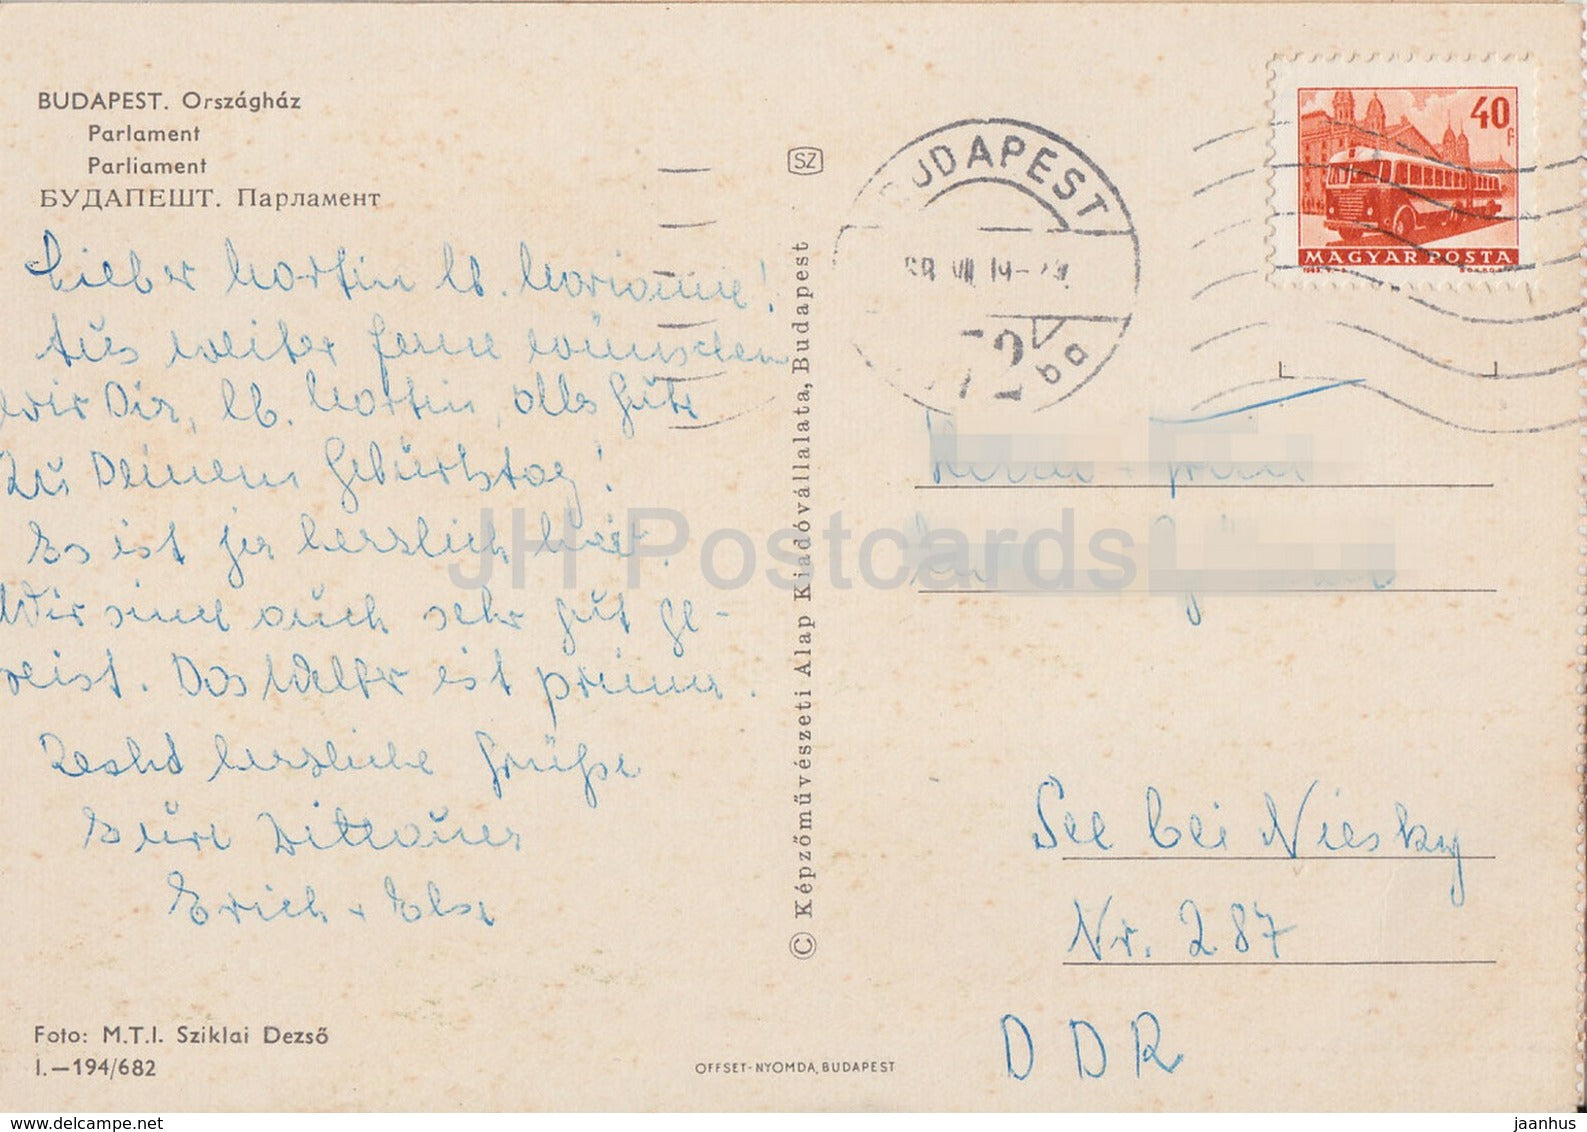 BUDAPEST. Országház
Parlament
Parliament
БУДАПЕШТ. Парламент
Lieber Martin lb. Marianne!
Aus weiter Ferne wünschen
wir Dir, lb. Martin, alles Gute
zu Deinem Geburtstag!
Es ist ja herzlich hier.
Wir sind auch sehr gut ge-
reist. Das Wetter ist prima.
Recht herzliche Grüße
Eure
Erich + Elsa
Foto: M.T.I. Sziklai Dezső
I.—194/682
SZ
© Képzőművészeti Alap Kiadóvállalata, Budapest
OFFSET-NYOMDA, BUDAPEST
BUDAPEST
72
40 f
MAGYAR POSTA
See bei Niesky
Nr. 287
DDR
JH Postcards
www.delcampe.net
jaanhus